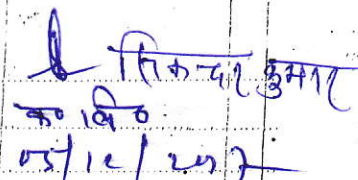 सिकन्दर कुमार
क० लि०
05/12/2017